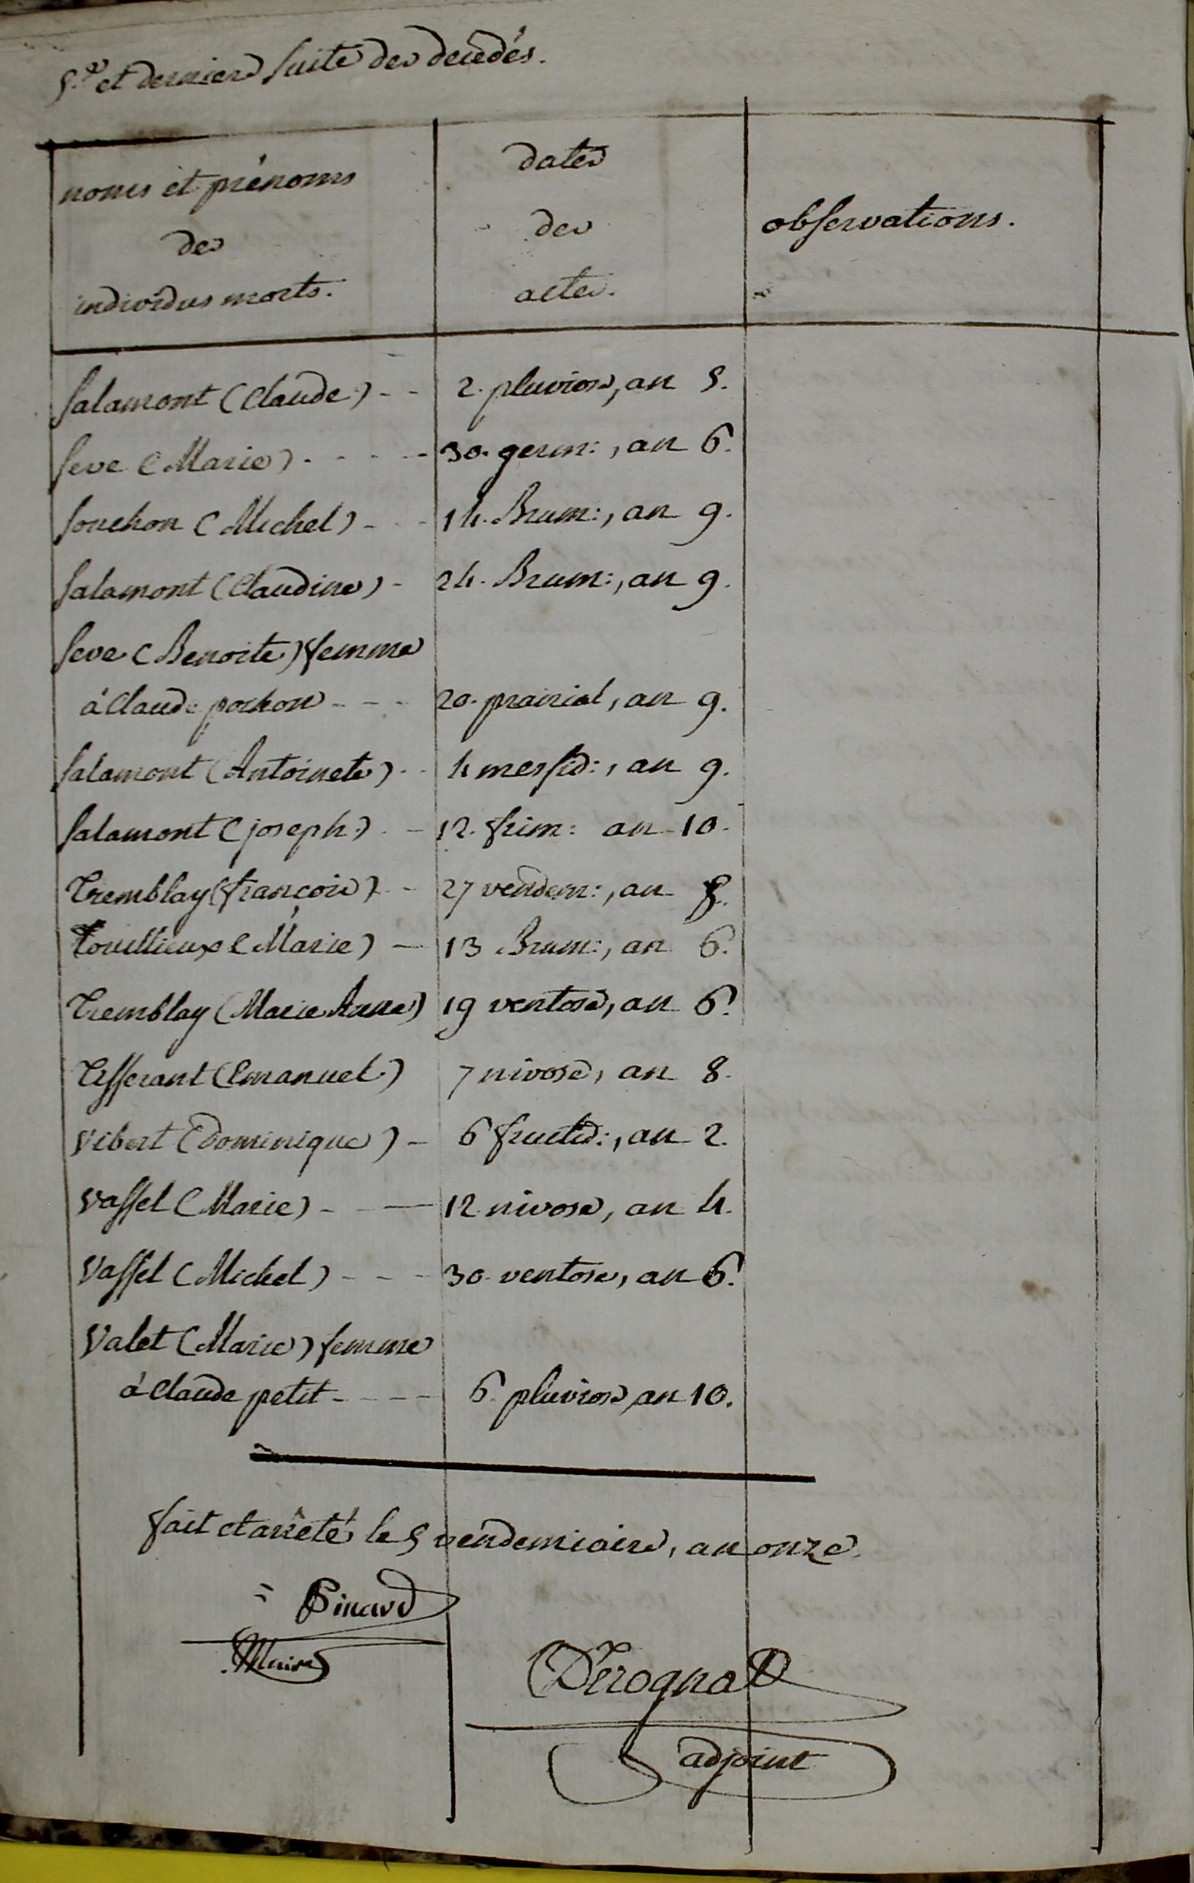 5.e et derniere suite des decedés.
noms et prénoms
des
individus morts.
dates
des
actes.
observations.
Salamont (Claude) - - 2. pluviose, an 5.
Seve (Marie) - - - - 30. germ:, an 6.
Souchon (Michel) - - 14. Brum:, an 9.
Salamont (Claudine) - 24. Brum:, an 9.
Seve (Benoite) femme
à Claude pochon - - - 20. prairial, an 9.
Salamont (Antoinete) - - 4 messid:, an 9.
Salamont (joseph) - - 12. frim: an 10.
Tremblay (françois) - - 27 vendem:, an
Touillieux (Marie) - 13 Brum:, an 6.
Tremblay (Marie Anne) 19 ventose, an 6.
Tisserant (Emanuel) 7 nivose, an 8.
Vibert (Dominique) - 6 fructid:, an 2.
Vassel (Marie) - - 12 nivose, an 4.
Vassel (Michel) - - - 30 ventose, an 6.
Valet (Marie) femme
à Claude petit - - - - 6. pluviose, an 10.
fait et arrêté le 5 vendemiaire, an onze.
Pinard
Maire
Derognat
adjoint